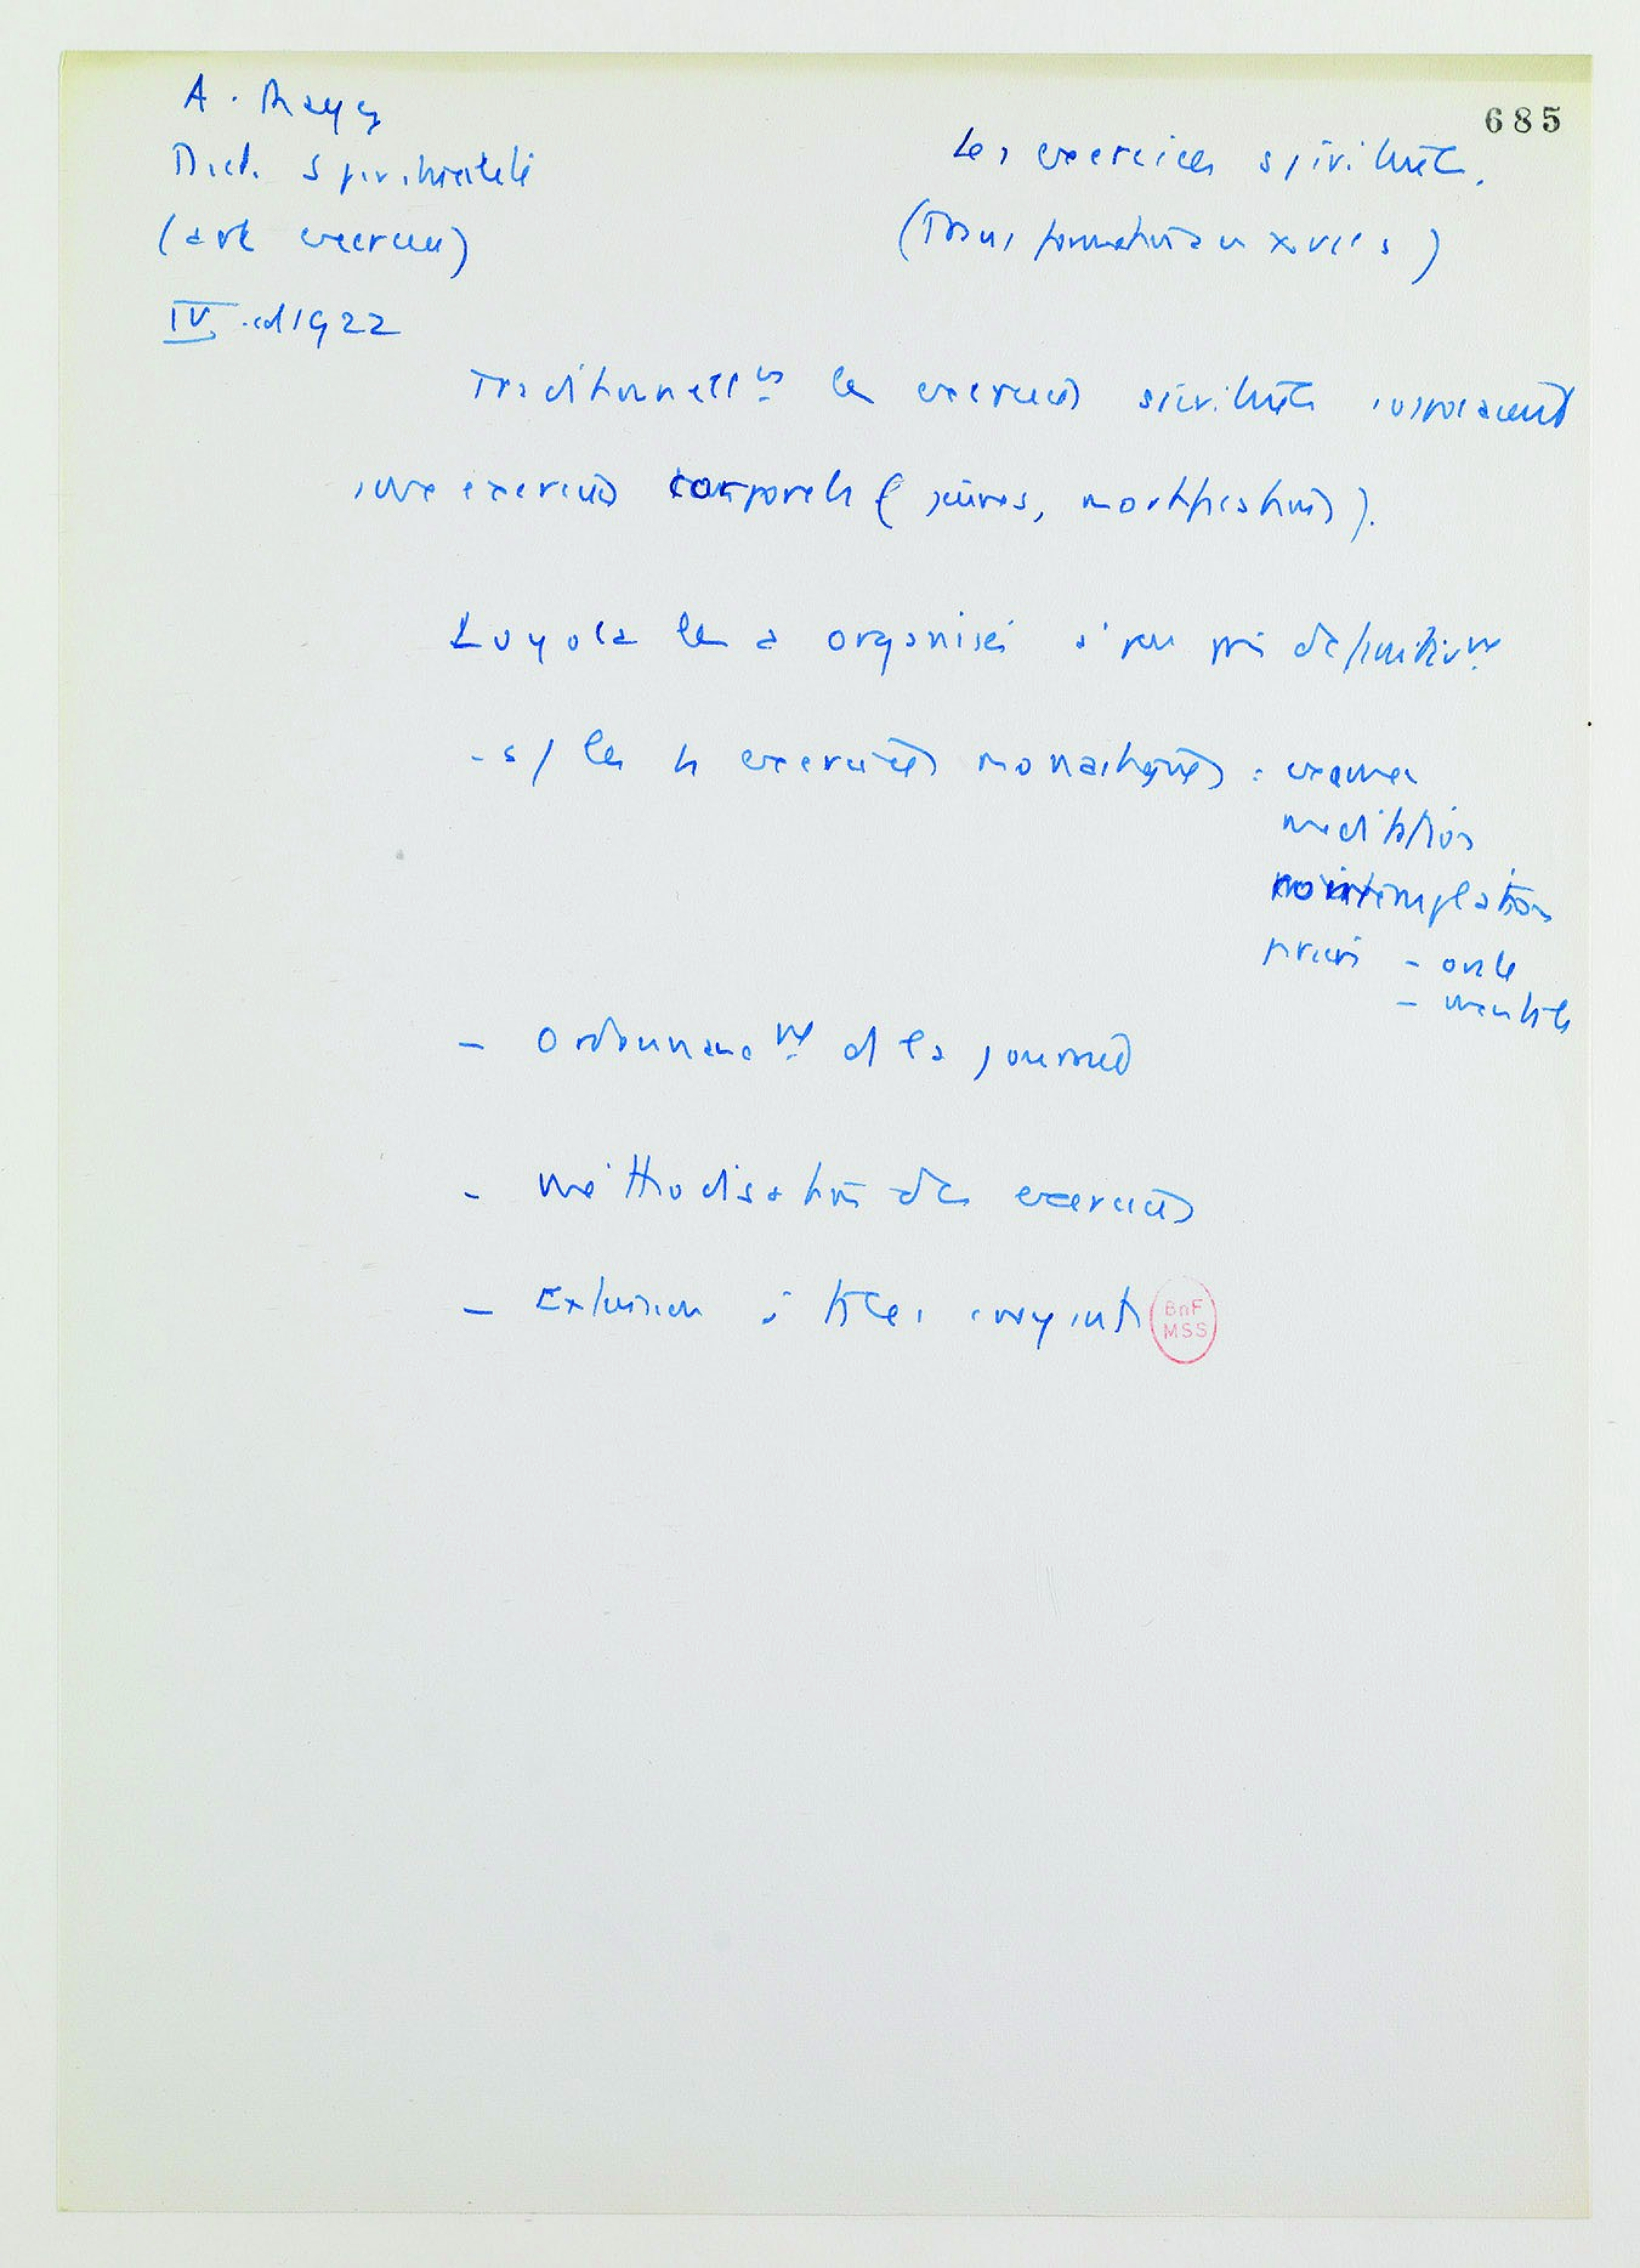 685
A. Mayer
Dict. Spiritualité
(art exercices)
IV. col 1922
Les exercices spirituels.
(Transformation au XVIe s)
Traditionnellt les exercices spirituels
exercices corporels (jeûnes, mortifications).
Loyola les a organisés à peu près définitivt
- s/ les 4 exercices monastiques : examen
méditation
contemplation
prière - orale
- mentale
- Ordonnancemt de la journée
- méthodisation des exercices
- Extension à
BnF
MSS